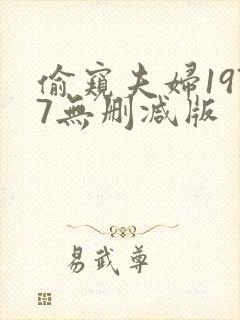 偷窺夫婦197
7無刪減版
易武尊